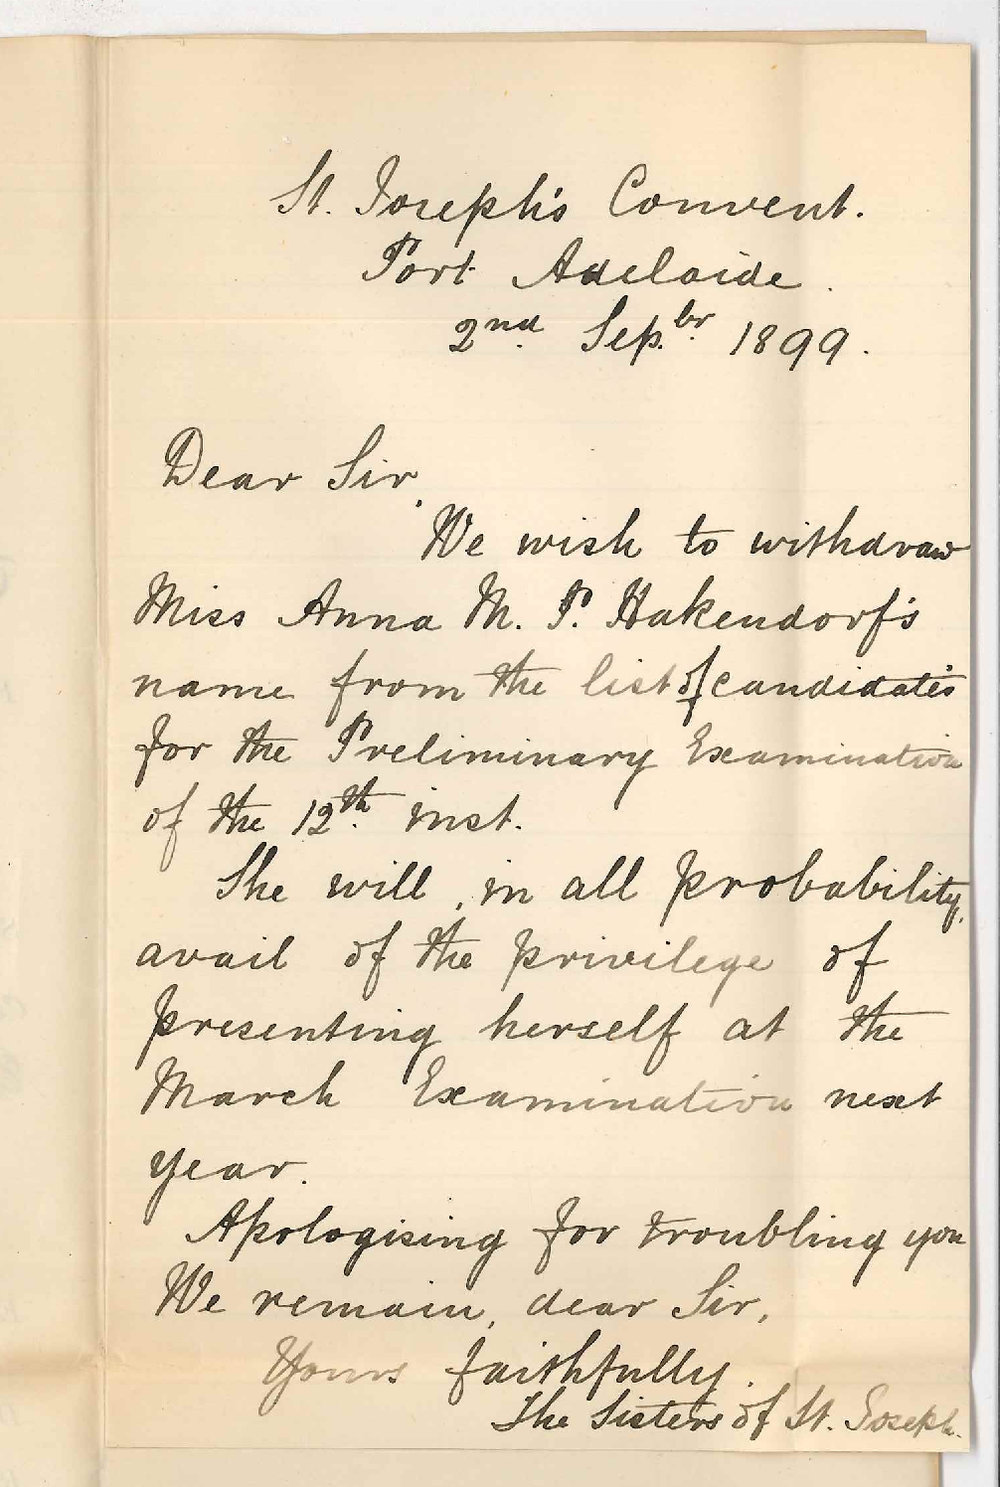 St. Joseph's Convent.
Port Adelaide.
2nd. Sep.br. 1899.
Dear Sir,
We wish to withdraw
Miss Anna M. P. Hakendorf's
name from the list of candidates
for the Preliminary Examination
of the 12th. inst.
She will, in all probability,
avail of the privilege of
presenting herself at the
March Examination next
year.
Apologising for troubling you
We remain, dear Sir,
Yours faithfully.
The Sisters of St. Joseph.